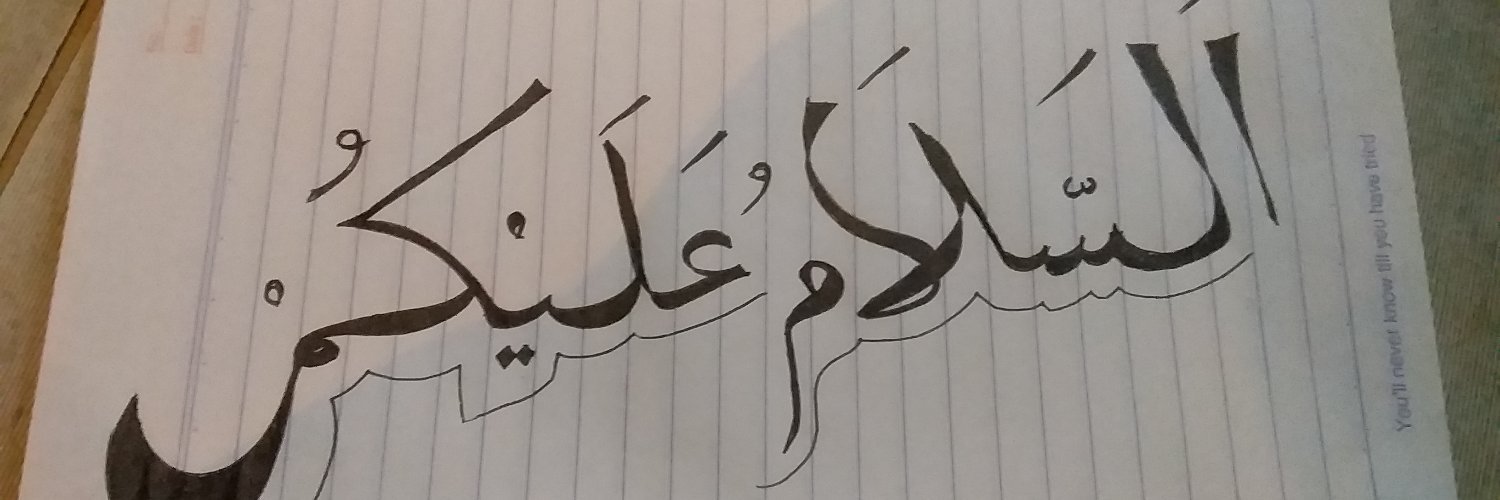 اَلسَّلَامُ عَلَيْكُمْ
You'll never know till you have tried